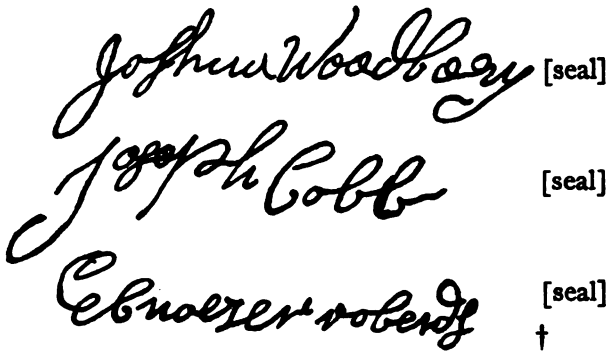 Joshua Woodbary [seal]
Joseph Cobb [seal]
Ebnoezer roberds [seal]
†